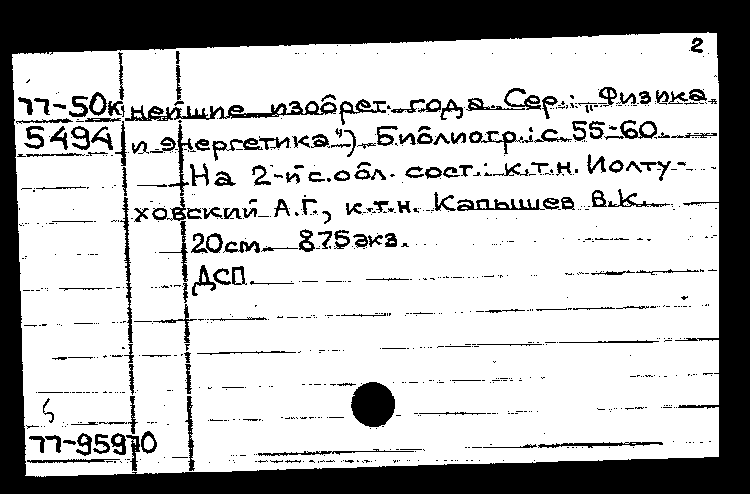 2
77-50к нейшие изобрет. года. Сер.: „Физика
5494 и энергетика“) Библиогр.: с. 55-60.
На 2-й с. обл. сост.: к.т.н. Иолту-
ховский А.Г., к.т.н. Капышев В.К.
20см. 875экз.
ДСП.
77-95970